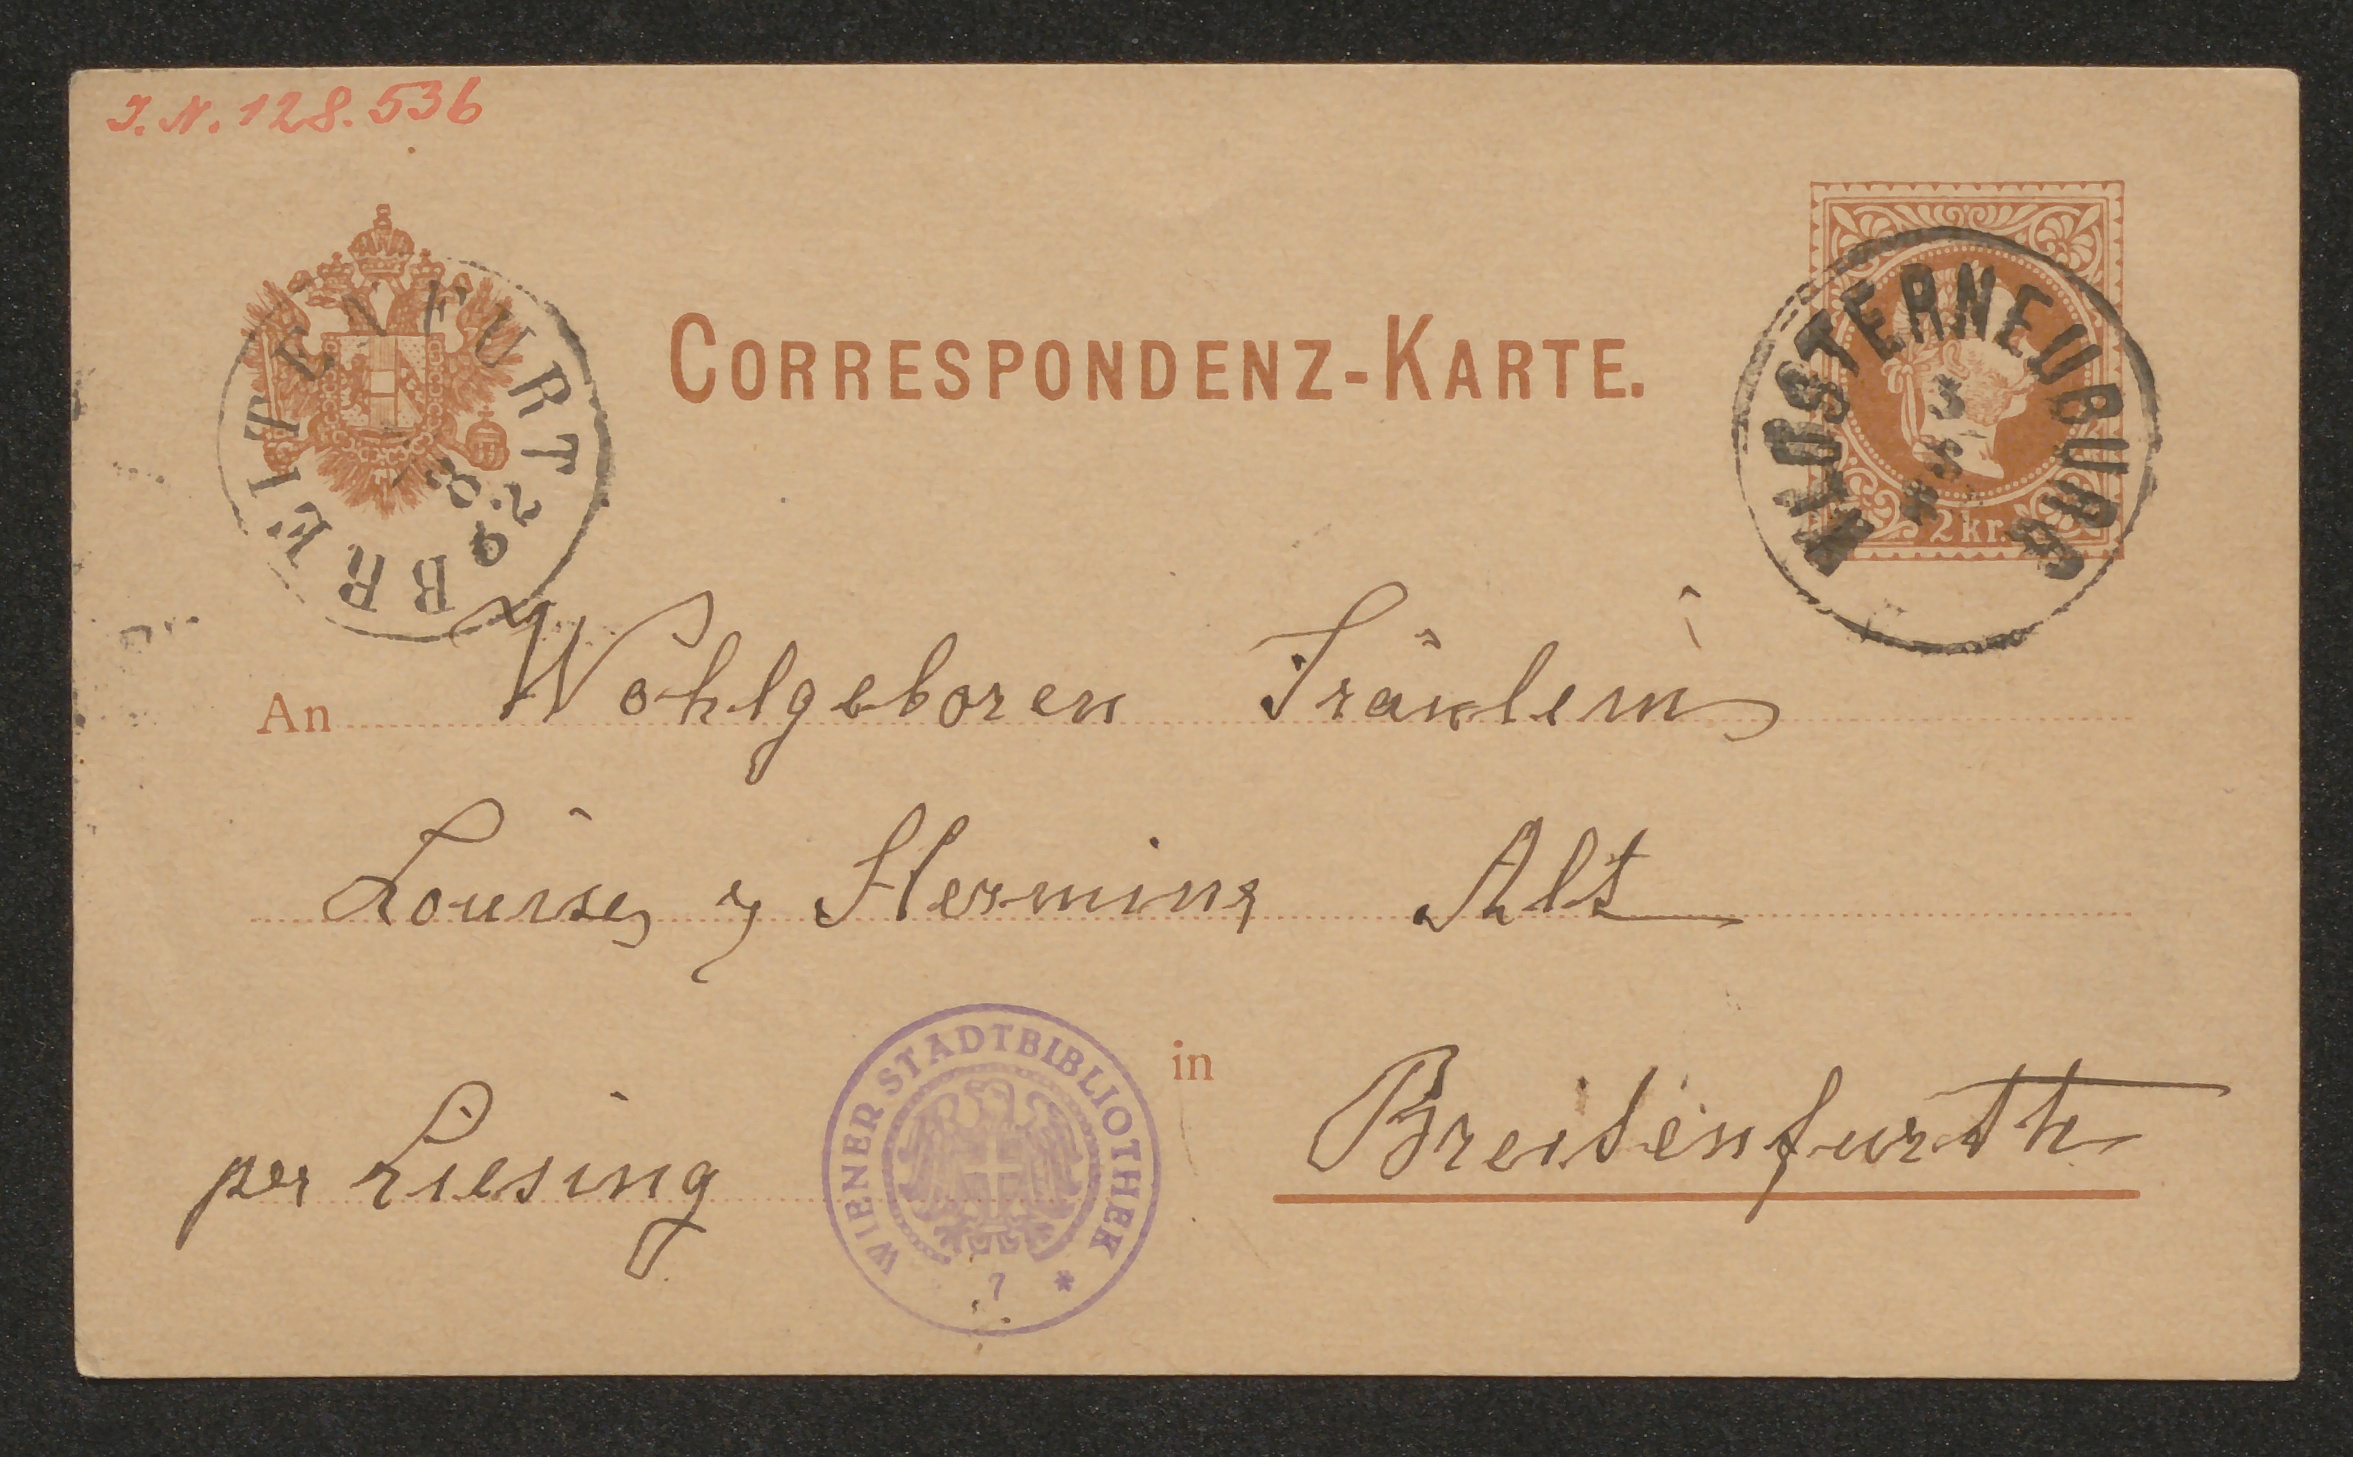 J.N. 128.536
CORRESPONDENZ-KARTE.
KLOSTERNEUBURG
2 kr.
BREITENFURT
An Wohlgeboren Fräulein
Louise & Hermine Alt
in
per Liesing Breitenfurth
WIENER STADTBIBLIOTHEK * 7